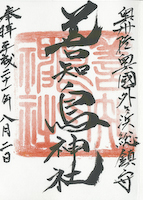 奥陸奥國外ヶ浜総鎮守
善知鳥神社
奉拝 平成二十二年八月二日